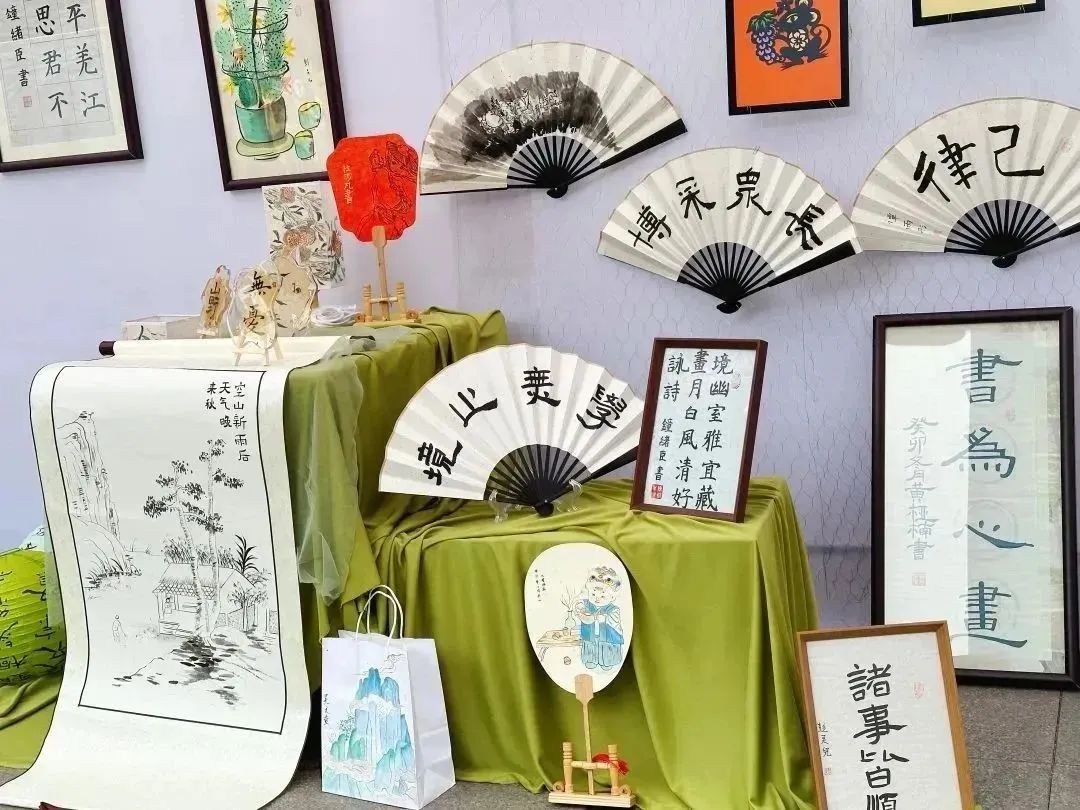 平羌江
思君不
鍾緒臣書
博采眾長
律己
無憂
空山新雨后
天气晚
来秋
學無止境
境幽室雅宜藏
畫月白風清好
詠詩
鍾緒臣書
書為心畫
諸事皆順